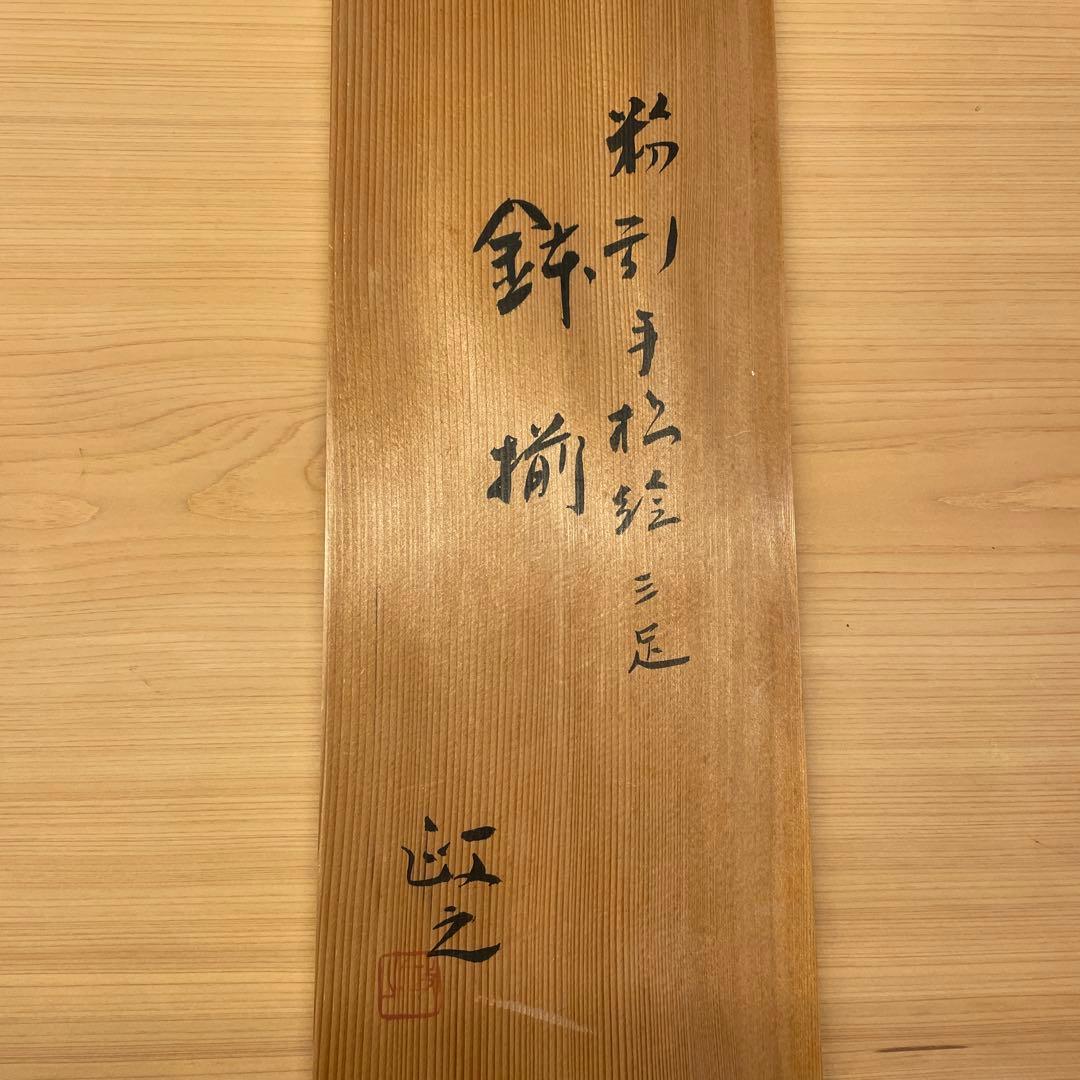 粉引手松絵三足
鉢揃
政之